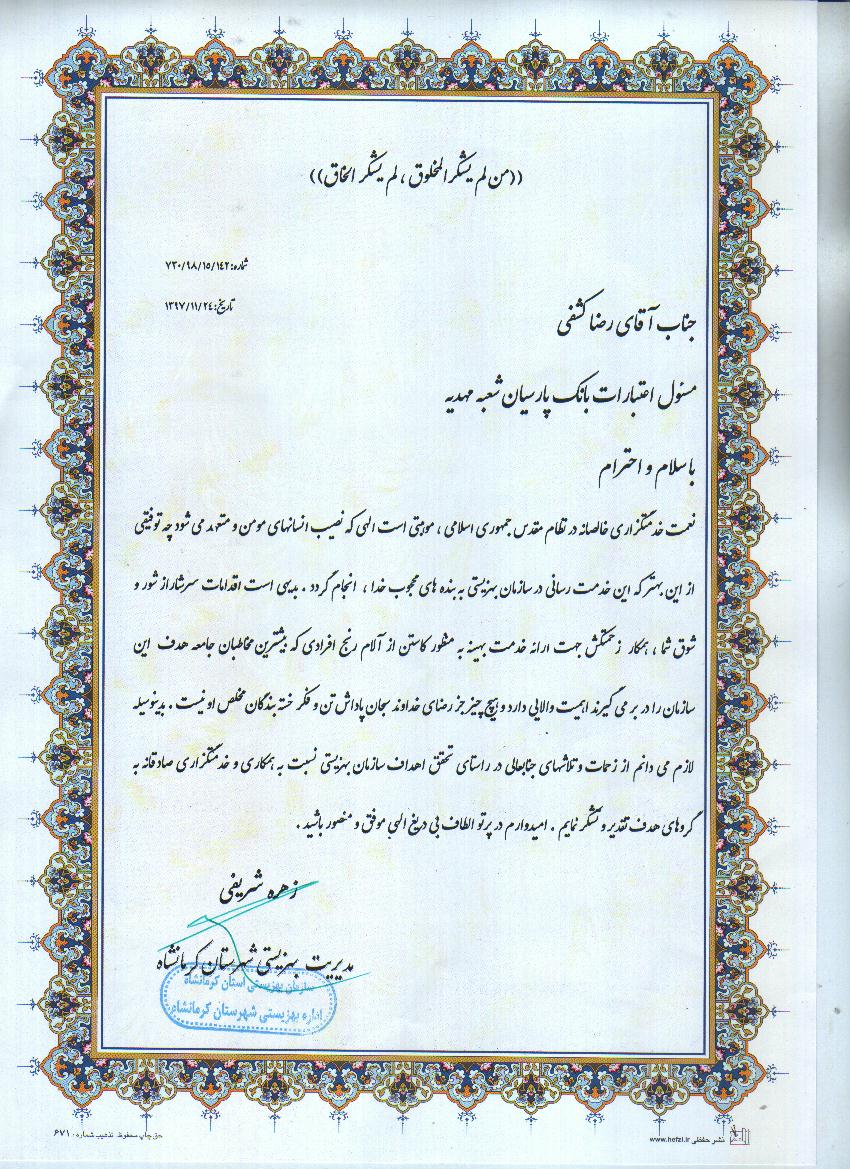 ((من لم یشکر المخلوق ، لم یشکر الخاق))
شماره: ۷۳۰/۹۸/۱۵/۱۴۲
تاریخ: ۱۳۹۷/۱۱/۲۴
جناب آقای رضا کشفی
مسئول اعتبارات بانک پارسیان شعبه مهدیه
با سلام و احترام
نعمت خدمتگزاری خالصانه در نظام مقدس جمهوری اسلامی ، موهبتی است الهی که نصیب انسانهای مومن و متعهد می شود چه توفیقی
از این بهتر که این خدمت رسانی در سازمان بهزیستی به بنده های محبوب خدا ، انجام گردد . بدیهی است اقدامات سرشار از شور و
شوق شما ، همکار زحمتکش جهت ارائه خدمت بهینه به منظور کاستن از آلام رنج افرادی که بیشترین مخاطبان جامعه هدف این
سازمان را در بر می گیرند اهمیت والایی دارد و هیچ چیز جز رضای خداوند سبحان پاداش تن و فکر خسته بندگان مخلص او نیست . بدینوسیله
لازم می دانم از زحمات و تلاشهای جنابعالی در راستای تحقق اهداف سازمان بهزیستی نسبت به همکاری و خدمتگزاری صادقانه به
گروهای هدف تقدیر و تشکر نمایم . امیدوارم در پرتو الطاف بی دریغ الهی موفق و منصور باشید .
زهره شریفی
مدیریت بهزیستی شهرستان کرمانشاه
سازمان بهزیستی استان کرمانشاه
اداره بهزیستی شهرستان کرمانشاه
نشر حفظی www.hefzi.ir
حق چاپ محفوظ. تذهیب شماره: ۶۷۱